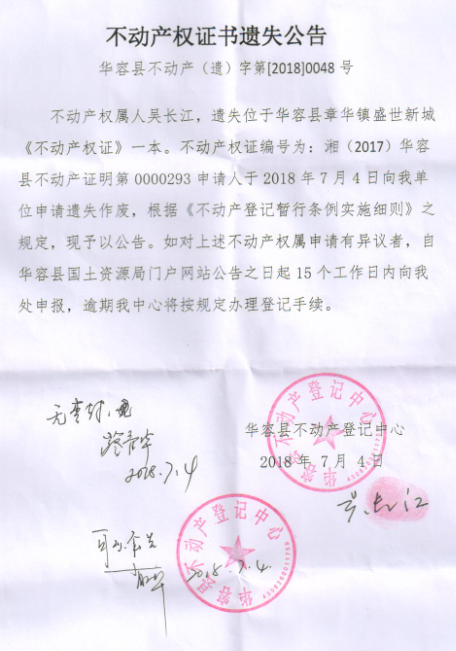 不动产权证书遗失公告
华容县不动产（遗）字第[2018]0048 号
不动产权属人吴长江，遗失位于华容县章华镇盛世新城
《不动产权证》一本。不动产权证编号为：湘（2017）华容
县不动产证明第 0000293 申请人于 2018 年 7 月 4 日向我单
位申请遗失作废，根据《不动产登记暂行条例实施细则》之
规定，现予以公告。如对上述不动产权属申请有异议者，自
华容县国土资源局门户网站公告之日起 15 个工作日内向我
处申报，逾期我中心将按规定办理登记手续。
无查封
2018.7.4
华容县不动产登记中心
华容县不动产登记中心
2018 年 7 月 4 日
吴长江
华容县不动产登记中心
2018.7.4.